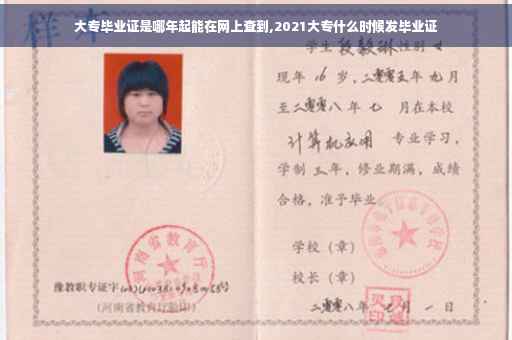 大专毕业证是哪年起能在网上查到,2021大专什么时候发毕业证
样本
学生段毅琳性别女
现年16岁，二零零五年九月
至二零零八年七月在本校
计算机应用 专业学习，
学制三年，修业期满，成绩
合格，准予毕业。
学校（章）
校长（章）
二零零八年 月一日
河南省教育厅
豫教职专证字
号
(河南省教育厅验印)